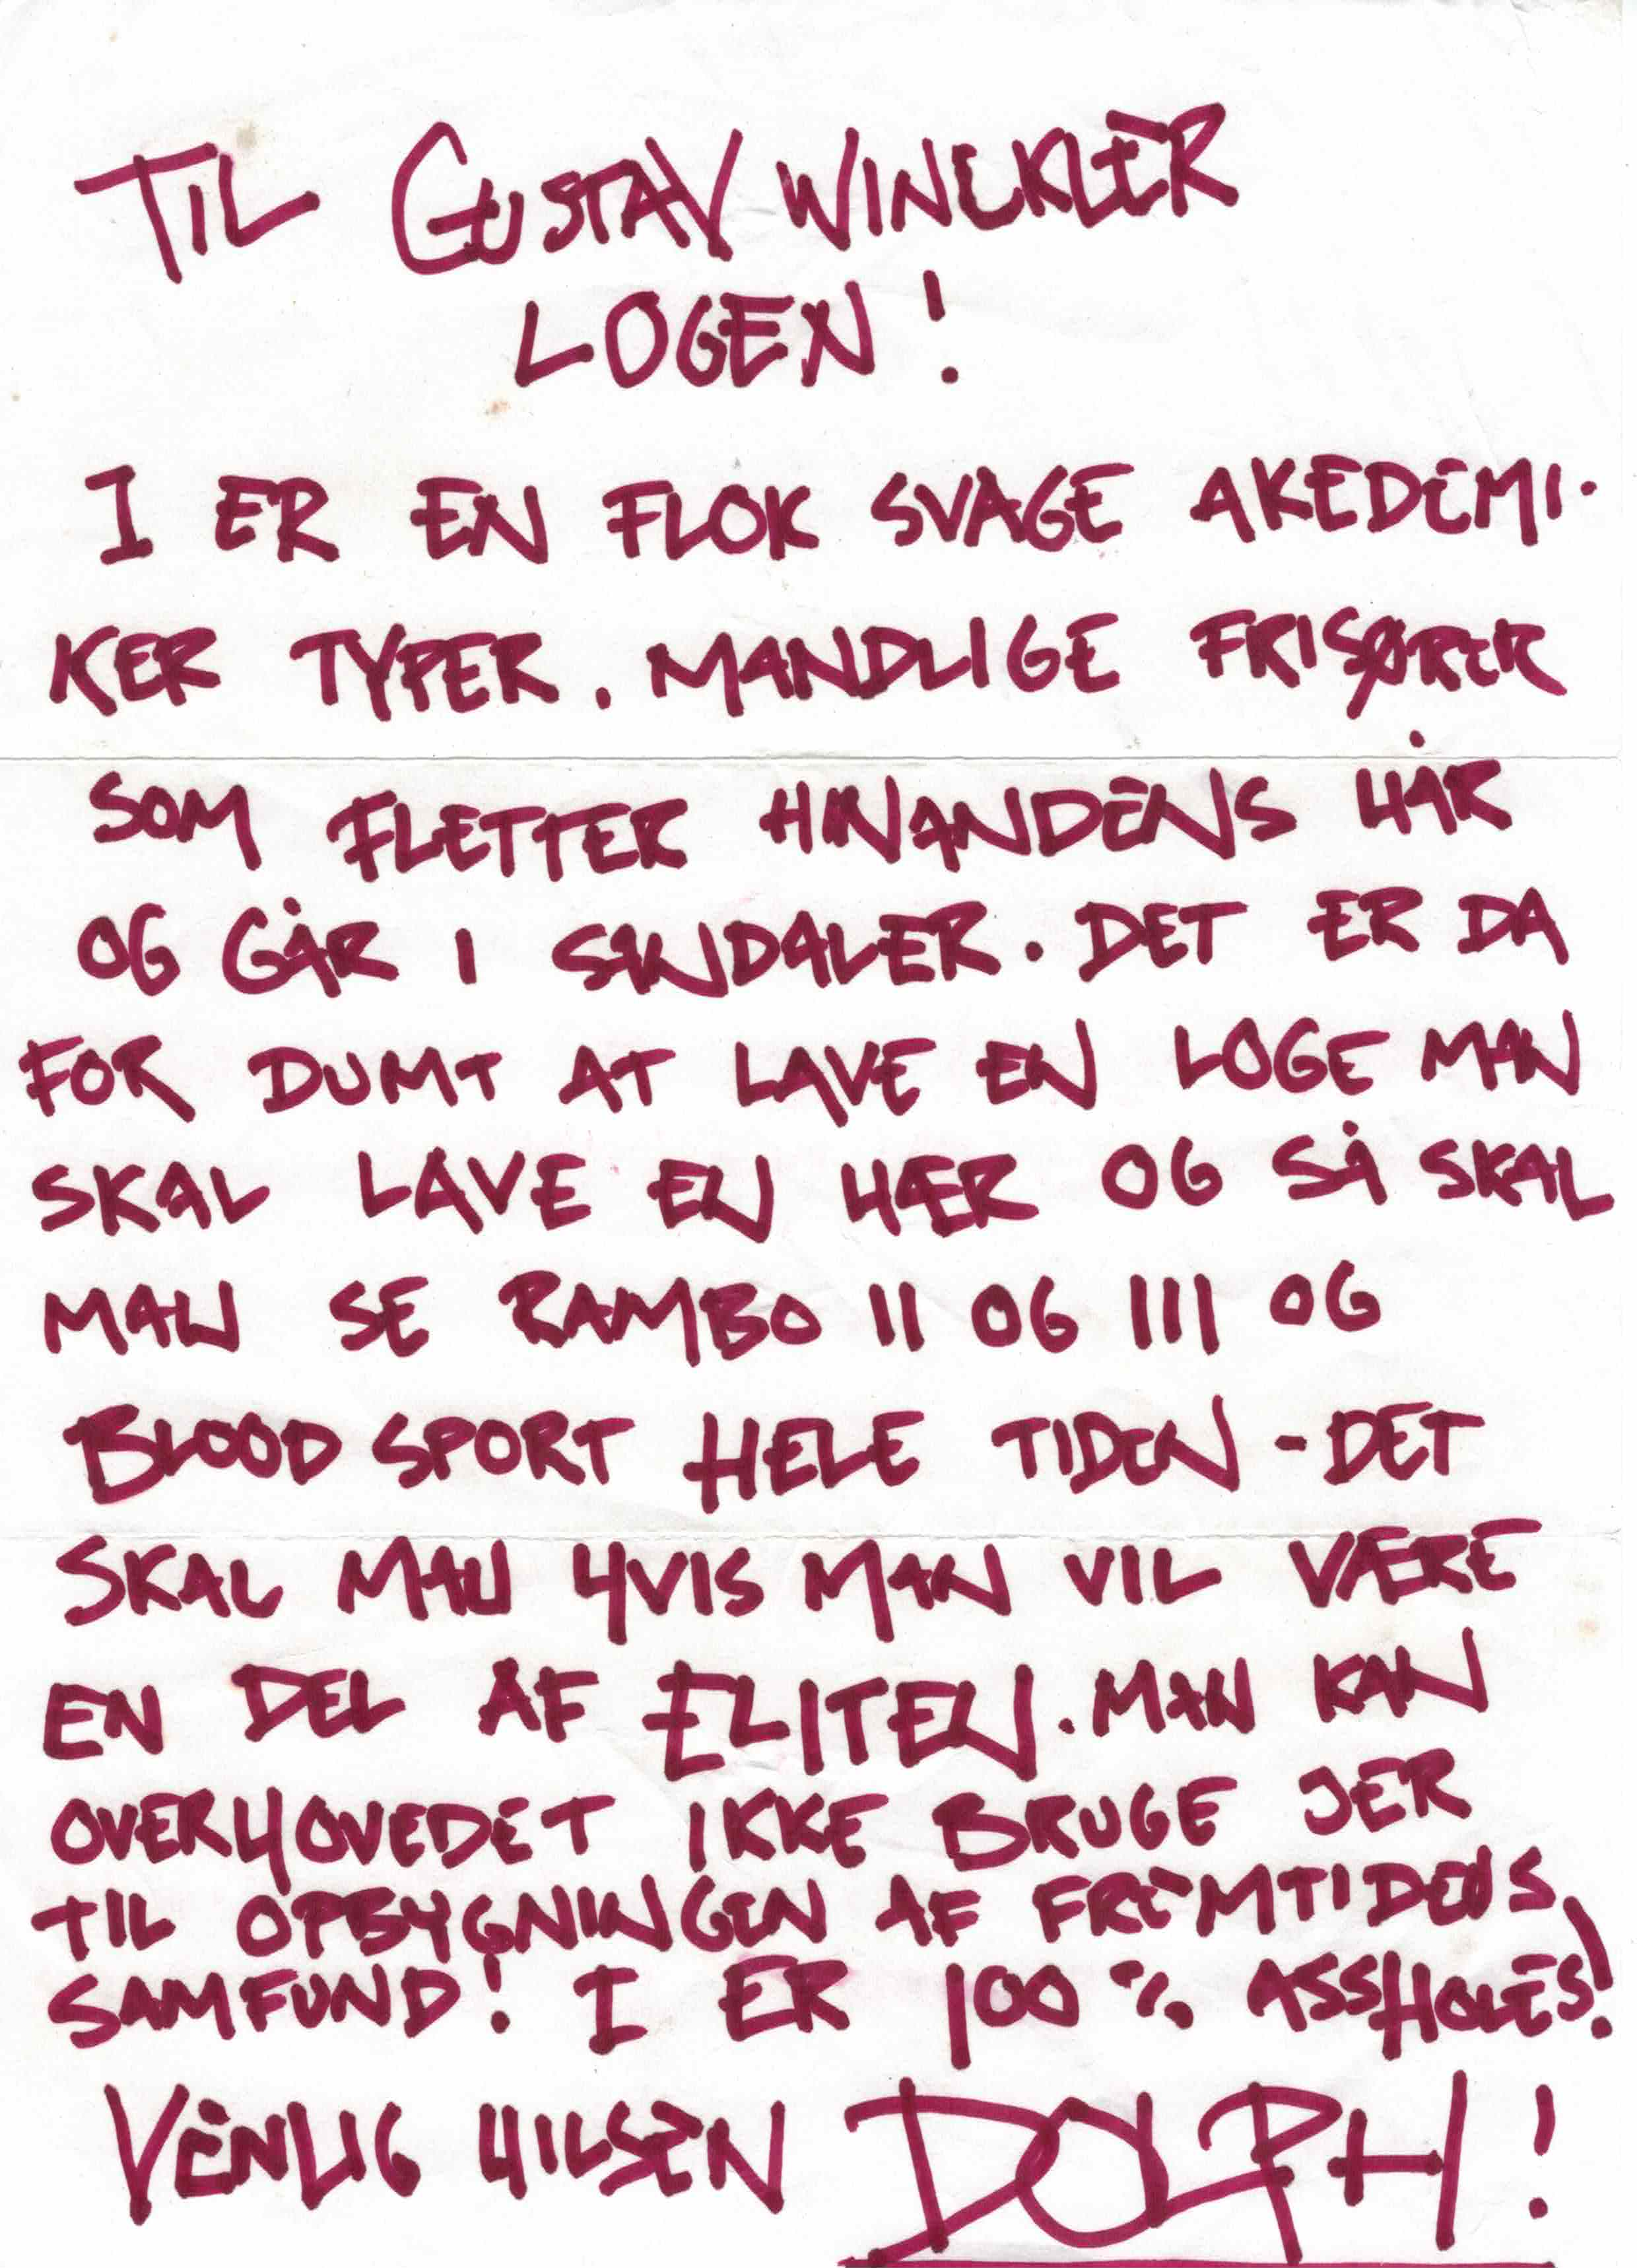 TIL GUSTAV WINCKLER
LOGEN!
I ER EN FLOK SVAGE AKEDEMI-
KER TYPER. MANDLIGE FRISØRER
SOM FLETTER HINANDENS HÅR
OG GÅR I SANDALER. DET ER DA
FOR DUMT AT LAVE EN LOGE MAN
SKAL LAVE EN HÆR OG SÅ SKAL
MAN SE RAMBO II OG III OG
BLOOD SPORT HELE TIDEN - DET
SKAL MAN HVIS MAN VIL VÆRE
EN DEL AF ELITEN. MAN KAN
OVERHOVEDET IKKE BRUGE JER
TIL OPBYGNINGEN AF FREMTIDENS
SAMFUND! I ER 100 % ASSHOLES!
VENLIG HILSEN DOLPH!